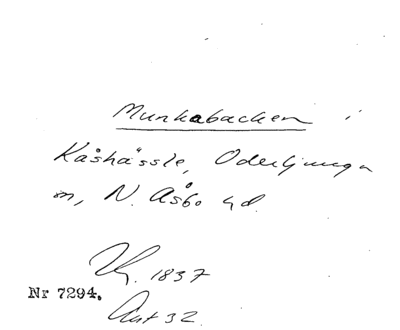 Munkabacken i
Kåshässle, Oderljunga
m, N. Åsbo hd.
Th. 1837
Nr 7294.
Ant 32